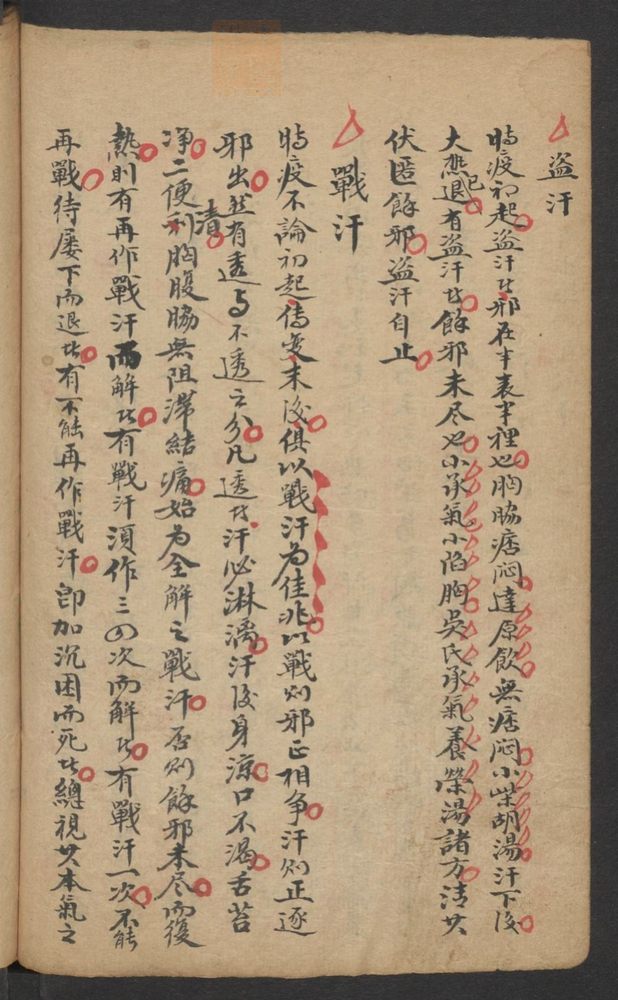 盗汗
時疫初起盗汗者邪在半表半裡也胸脇痞悶達原飲無痞悶小柴胡湯汗下後
大熱已退有盗汗者餘邪未尽也小承氣小陷胸吳氏承氣養榮湯諸方清其
伏匿餘邪盗汗自止
戰汗
時疫不論初起傳变末後俱以戰汗為佳兆以戰則邪正相争汗則正逐
邪出然有透与不透之分凡透者汗必淋漓汗後身涼口不渴舌苔
净二便清利胸腹脇無阻滞結痛始为全解之戰汗否則餘邪未尽而復
熱則有再作戰汗而解者有戰汗須作三四次而解者有戰汗一次不能
再戰待屡下而退者有不能再作戰汗即加沉困而死者總視其本氣之